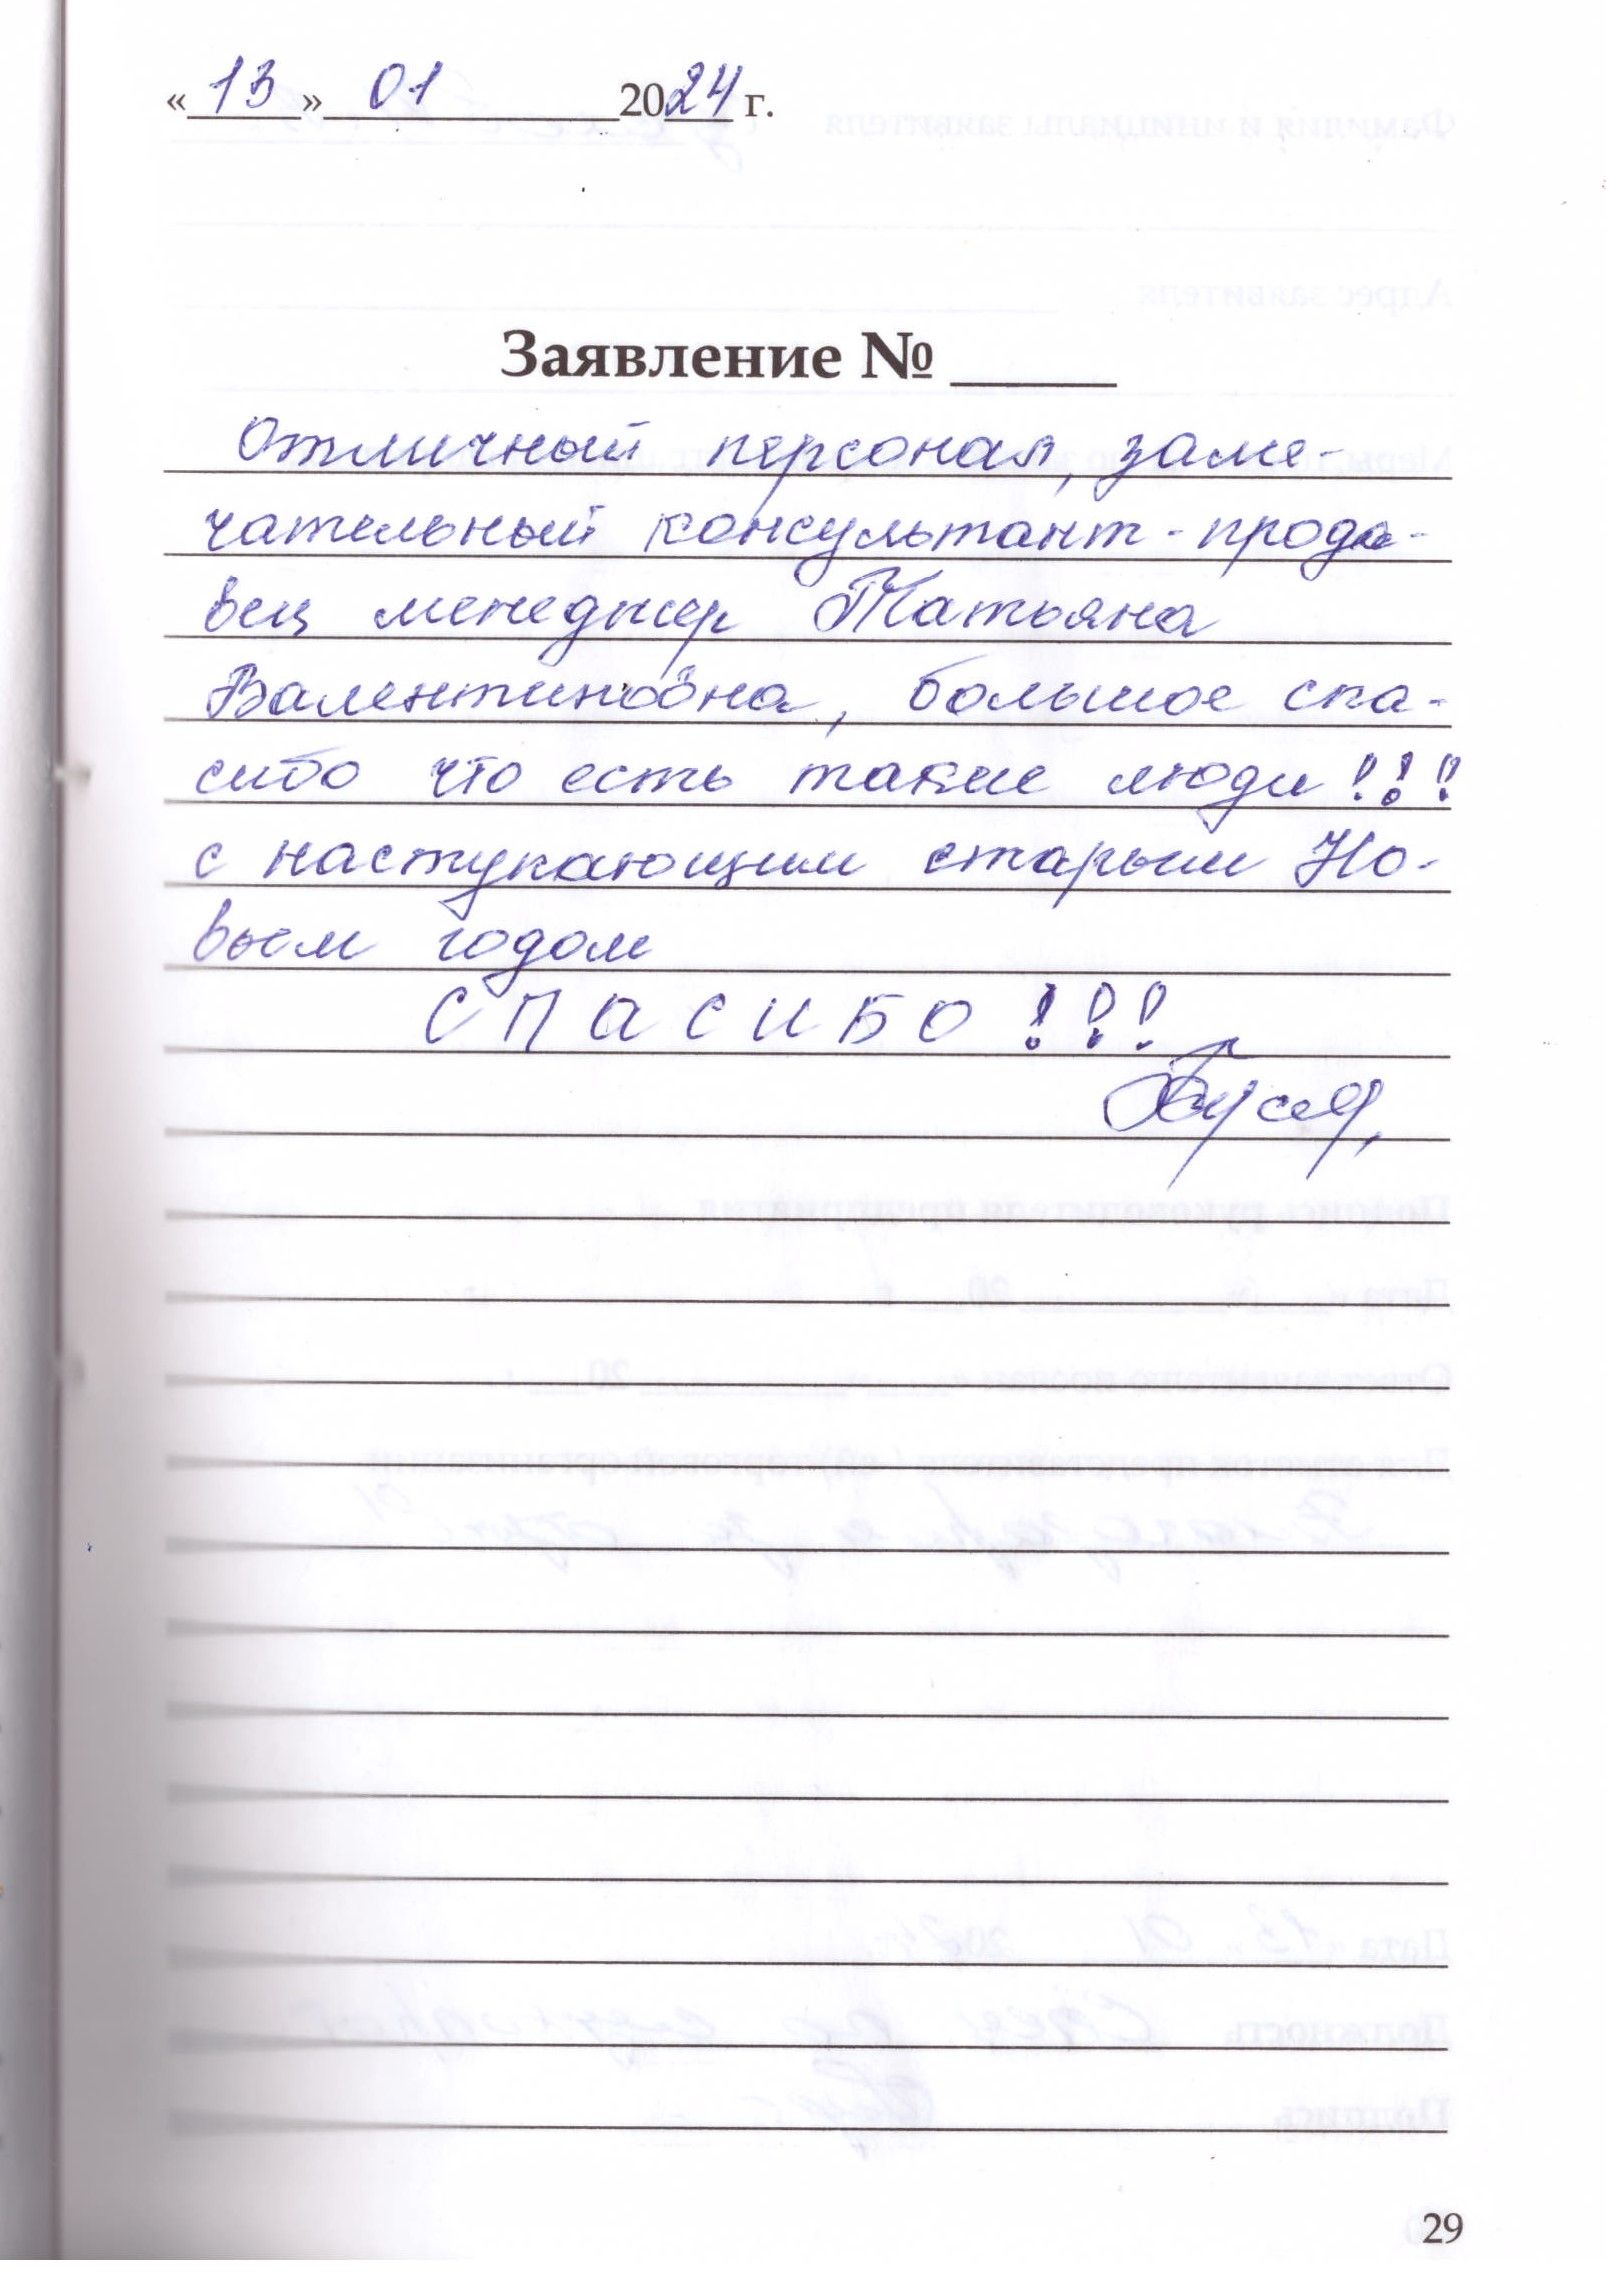 « 13 » 01 2024 г.
Заявление № ____
Отличный персонал, заме-
чательный консультант-прода-
вец менеджер Татьяна
Валентиновна, большое спа-
сибо что есть такие люди!!!
с наступающим старым Но-
вым годом
СПАСИБО!!!
29